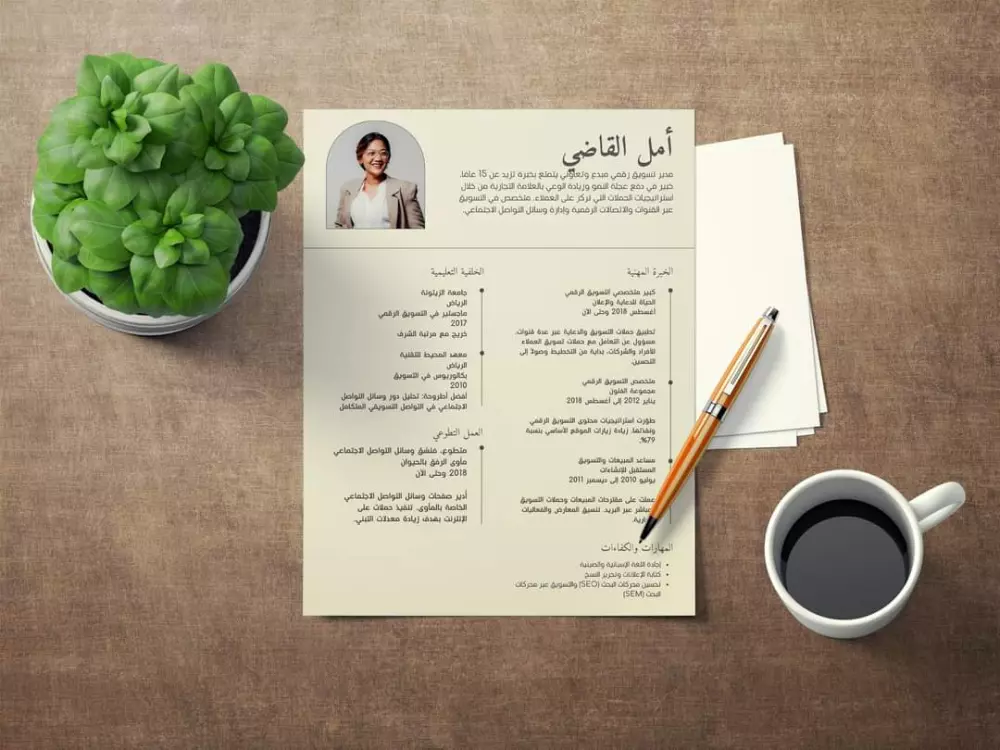 أمل القاضي
مدير تسويق رقمي مبدع وتعاوني يتمتع بخبرة تزيد عن 15 عامًا.
خبير في دفع عجلة النمو وزيادة الوعي بالعلامة التجارية من خلال
استراتيجيات الحملات التي تركز على العملاء. متخصص في التسويق
عبر القنوات والاتصالات الرقمية وإدارة وسائل التواصل الاجتماعي.
الخبرة المهنية
كبير متخصصي التسويق الرقمي
الحياة للدعاية والإعلان
أغسطس 2018 وحتى الآن
تطبيق حملات التسويق والدعاية عبر عدة قنوات.
مسؤول عن التعامل مع حملات تسويق العملاء
للأفراد والشركات، بداية من التخطيط وصولًا إلى
التحسين.
متخصص التسويق الرقمي
مجموعة الفنون
يناير 2012 إلى أغسطس 2018
طوّرت استراتيجيات محتوى التسويق الرقمي
ونفذتها. زيادة زيارات الموقع الأساسي بنسبة
79%.
مساعد المبيعات والتسويق
المستقبل للإنشاءات
يوليو 2010 إلى ديسمبر 2011
عملت على مقترحات المبيعات وحملات التسويق
عبر البريد. تنسيق المعارض والفعاليات
المهارات والكفاءات
• إجادة اللغة الإسبانية والصينية
• كتابة الإعلانات وتحرير النسخ
• تحسين محركات البحث (SEO) والتسويق عبر محركات
البحث (SEM)
الخلفية التعليمية
جامعة الزيتونة
الرياض
ماجستير في التسويق الرقمي
2017
خريج مع مرتبة الشرف
معهد المحيط للتقنية
الرياض
بكالوريوس في التسويق
2010
أفضل أطروحة: تحليل دور وسائل التواصل
الاجتماعي في التواصل التسويقي المتكامل
العمل التطوعي
متطوع، منسّق وسائل التواصل الاجتماعي
مأوى الرفق بالحيوان
2018 وحتى الآن
أدير صفحات وسائل التواصل الاجتماعي
الخاصة بالمأوى. تنفيذ حملات على
الإنترنت بهدف زيادة معدلات التبني.